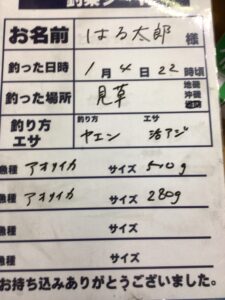 お名前 はる太郎 様
釣った日時 1月4日22時頃
釣った場所 見草 地磯 沖磯
釣り方 エサ 釣り方 ヤエン エサ 活アジ
魚種 アオリイカ サイズ 500g
魚種 アオリイカ サイズ 280g
魚種 サイズ
魚種 サイズ
お持ち込みありがとうございました。